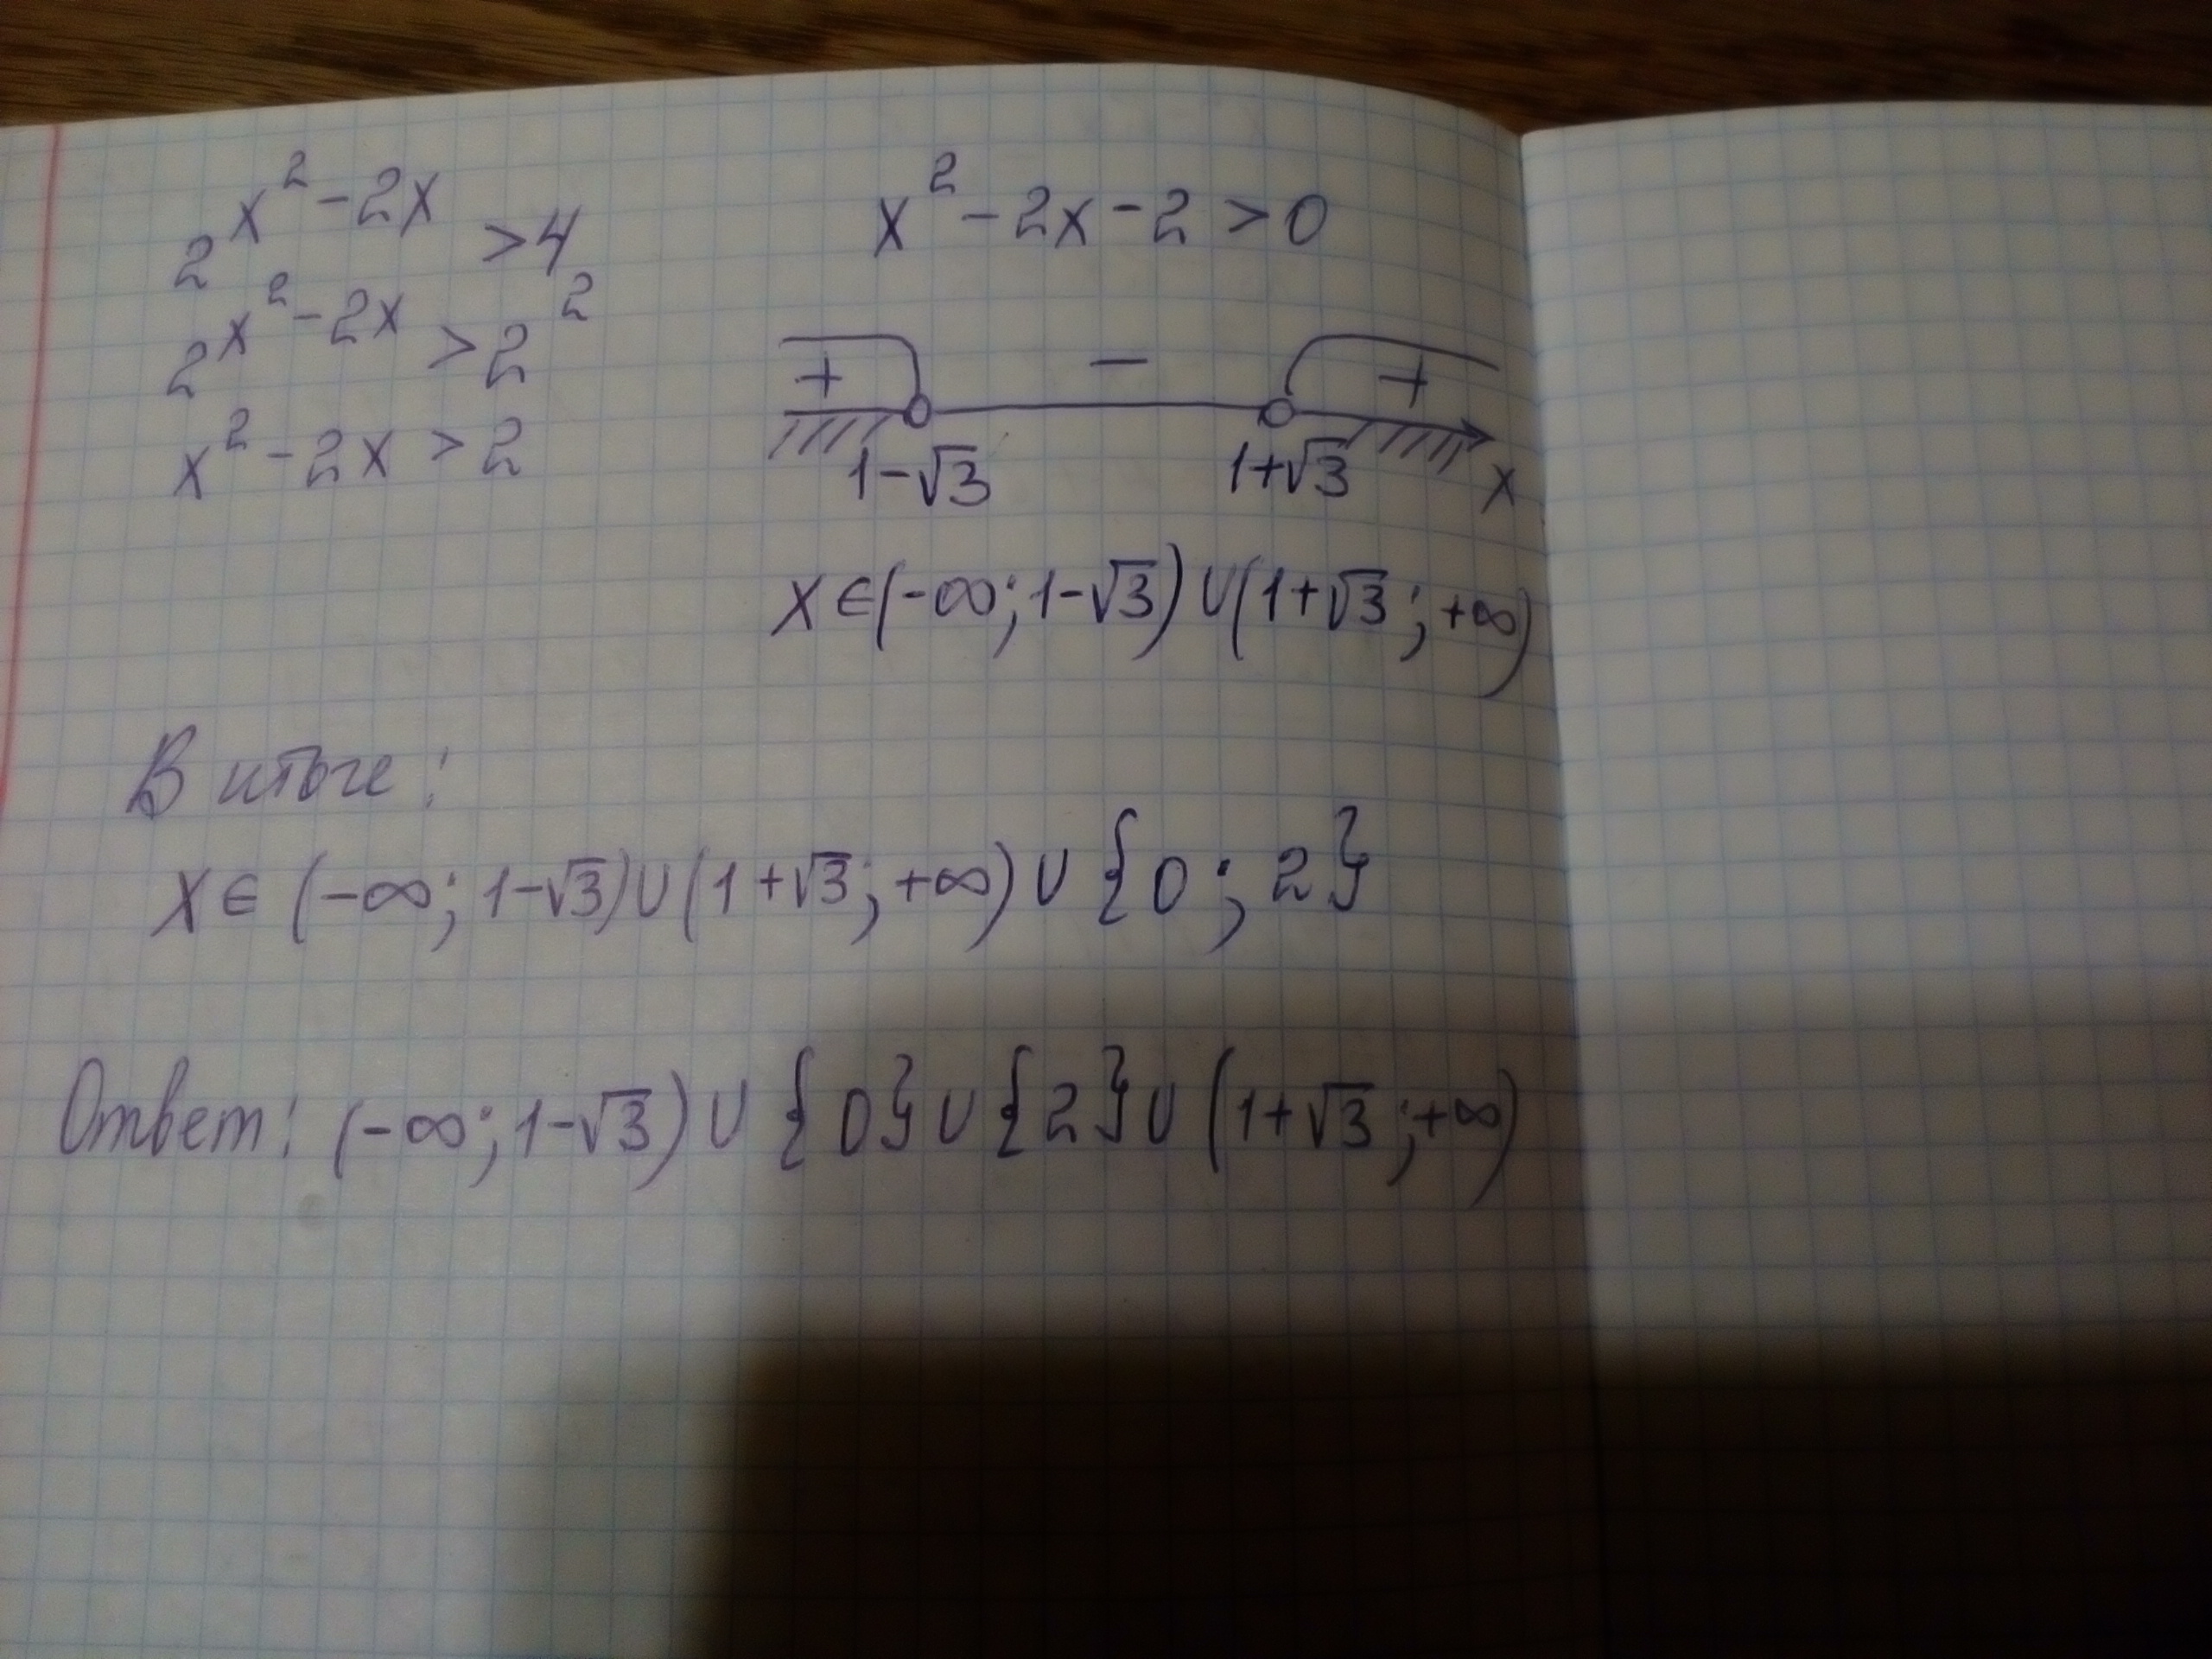 2^(x²-2x) > 4
2^(x²-2x) > 2²
x² - 2x > 2
x² - 2x - 2 > 0
+ − +
1-√3 1+√3 x
x ∈ (-∞; 1-√3) ∪ (1+√3; +∞)
В итоге:
x ∈ (-∞; 1-√3) ∪ (1+√3; +∞) ∪ {0; 2}
Ответ: (-∞; 1-√3) ∪ {0} ∪ {2} ∪ (1+√3; +∞)